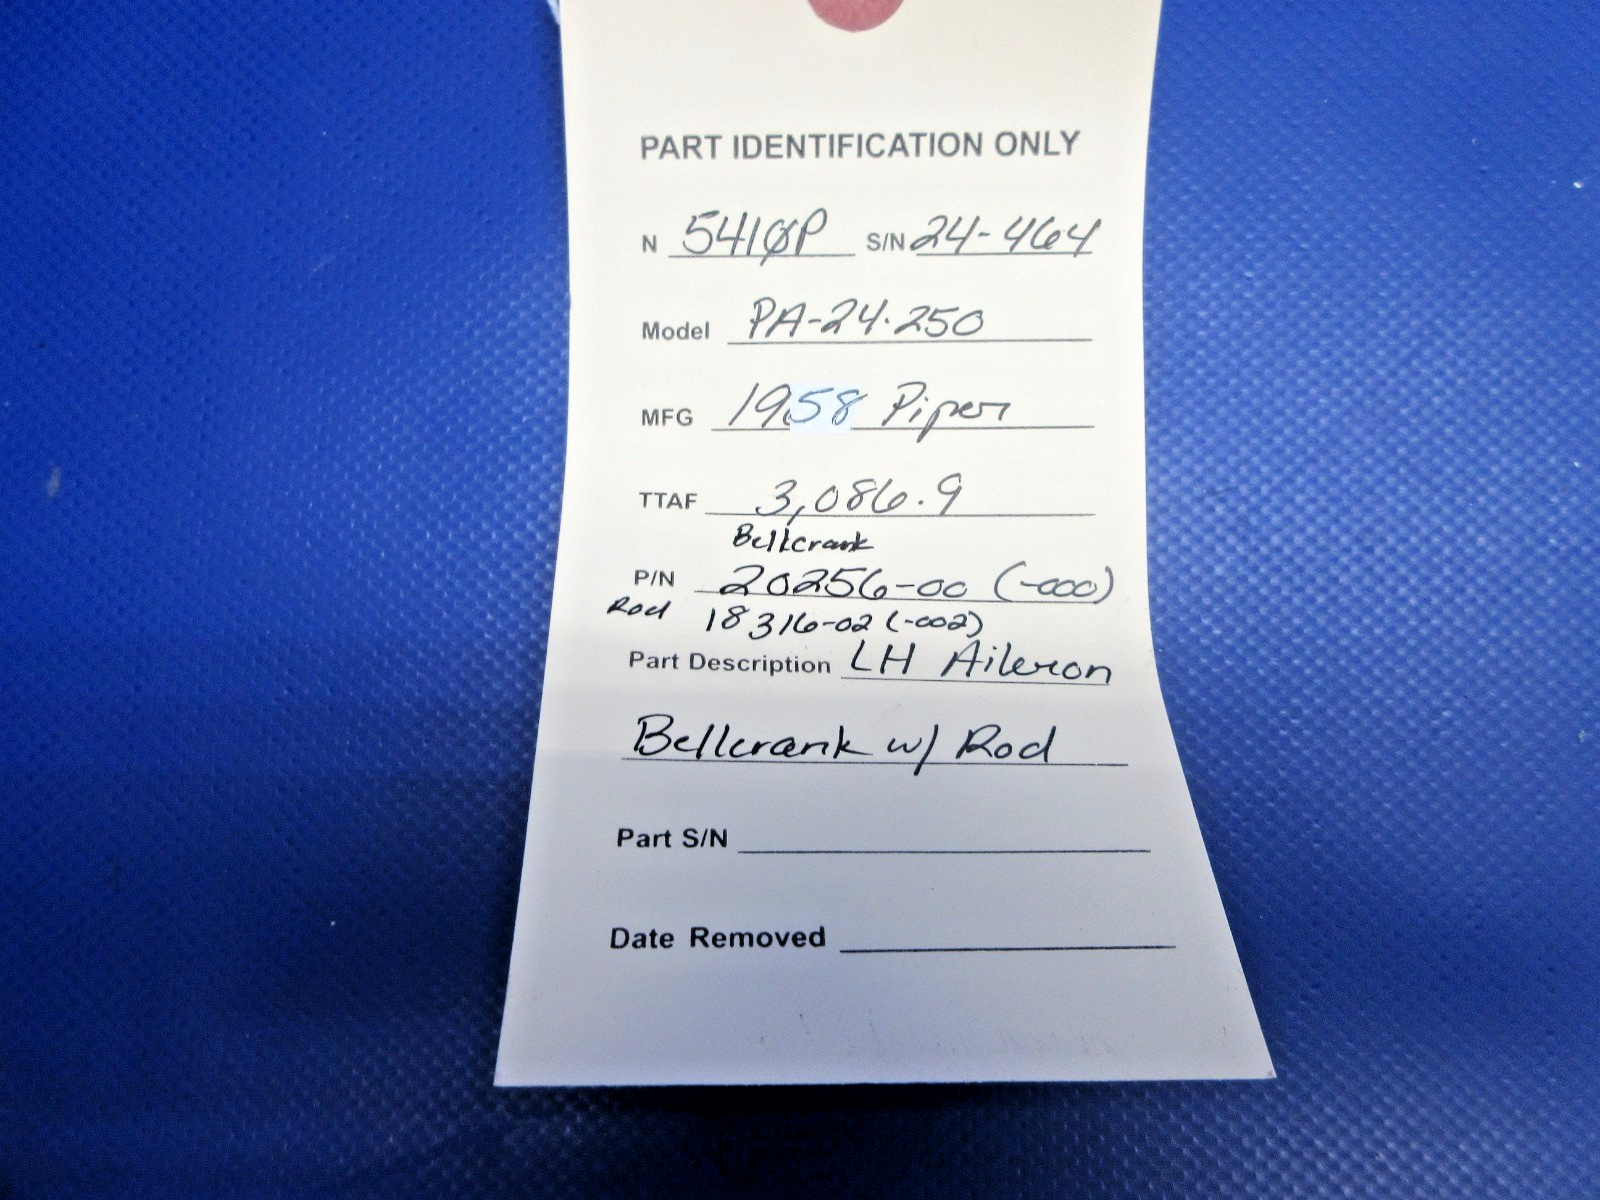 PART IDENTIFICATION ONLY
N 5410P S/N 24-464
Model PA-24-250
MFG 1958 Piper
TTAF 3,086.9
Bellcrank
P/N 20256-00 (-000)
Rod 18316-02 (-002)
Part Description LH Aileron
Bellcrank w/ Rod
Part S/N
Date Removed